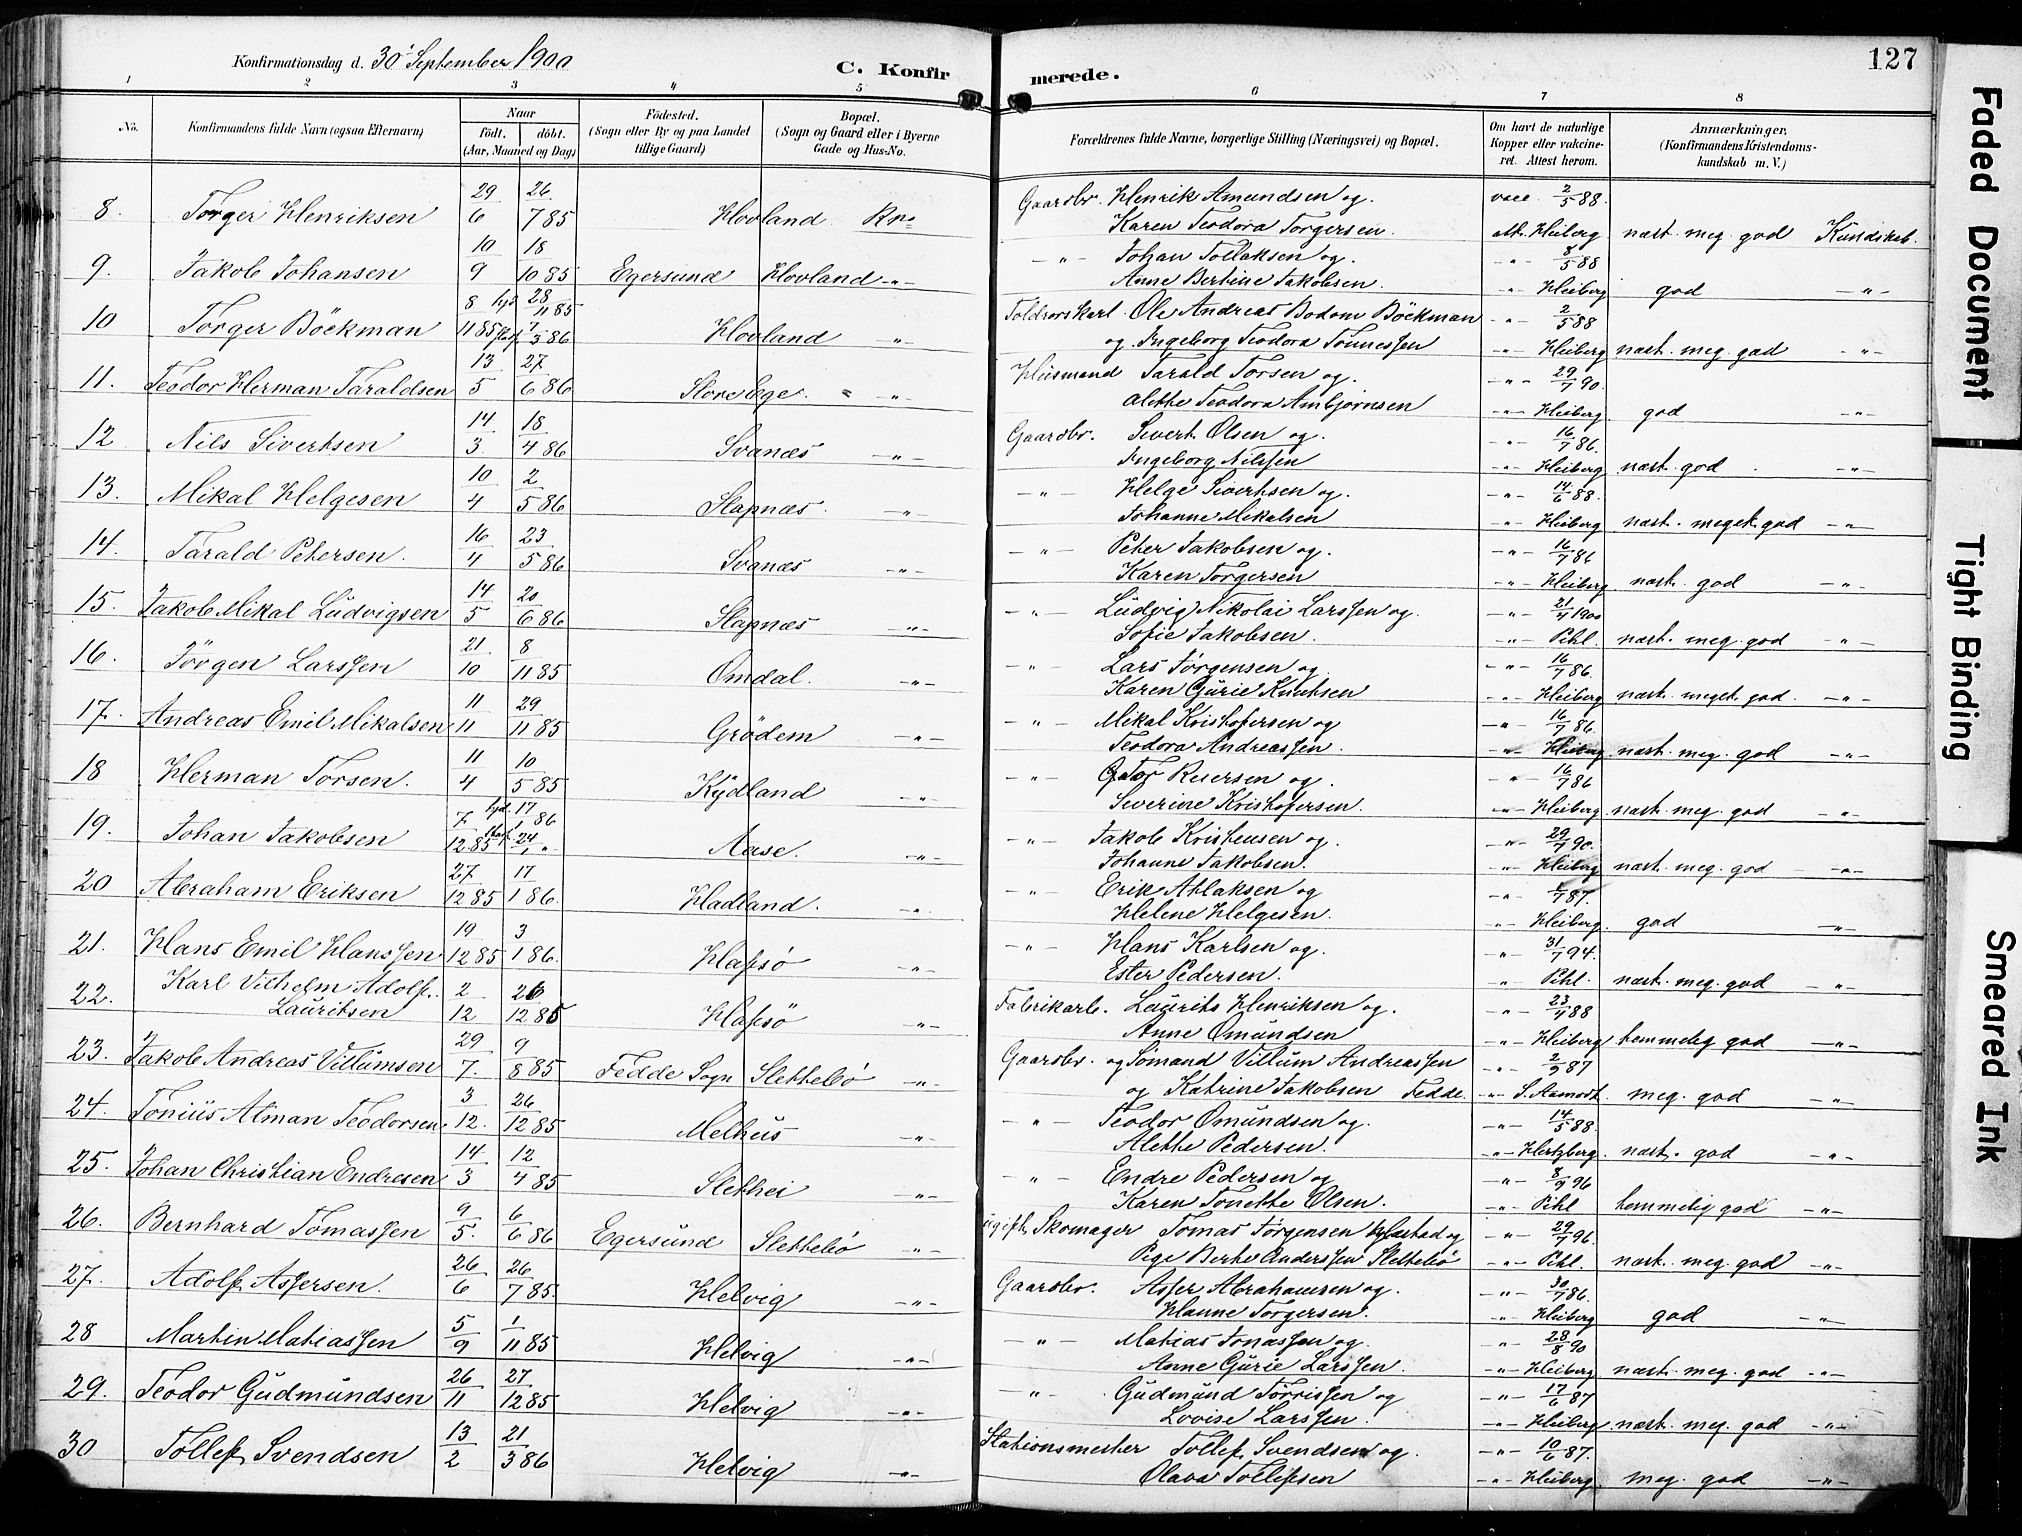 Konfirmationsdag d. 30' September 1900
C. Konfirmerede.
127
1 2 3 4 5 6 7 8
No. Konfirmandens fulde Navn (ogsaa Efternavn) Naar født. døbt. (Aar, Maaned og Dag) Fødested. (Sogn eller By og paa Landet tillige Gaard) Bopæl. (Sogn og Gaard eller i Byerne Gade og Hus-No. Forældrenes fulde Navne, borgerlige Stilling (Næringsvei) og Bopæl. Om havt de naturlige Kopper eller vaccineret. Attest herom. Anmærkninger. (Konfirmandens Kristendomskundskab m. V.)
8. Torger Henriksen 29/6 26/7 85 Hovland Gaardbr. Henrik Amundsen og vacc. 2/5 88.
Karen Teodora Torgersen. att. Heiberg næst. meg. god Kundskab.
9. Jakob Johansen 10/9 18/10 85 Egersund Hovland -"- -"- Johan Tollaksen og. -"- 8/5 88
Anne Bertine Jakobsen. -"- Heiberg god -"-
10 Torger Böckman 8/11 85 28/11 85 7/3 86 Hovland -"- Ole Andreas Bodom Böckman -"- 2/5 88
og Ingeborg Teodora Tønnessen -"- Heiberg næst. meg. god -"-
11. Teodor Herman Taraldsen 13/5 27/6 86 Store Ege. -"- Husmand Tarald Torsen og. -"- 29/7 90.
Alette Teodora Ambjørnsen -"- Heiberg god -"-
12 Nils Sivertsen 14/3 18/4 86 Svanæs -"- Gaardbr. Sivert Olsen og. -"- 16/7 86.
Ingeborg Nilssen -"- Heiberg næst. god -"-
13. Mikal Helgesen 10/4 2/5 86 Slapnæs. -"- -"- Helge Sivertsen og. -"- 14/6 88.
Johanne Mikalsen -"- Heiberg næst. meget god -"-
14. Tarald Petersen. 16/4 23/5 86 Svanæs -"- -"- Peter Jakobsen og. -"- 16/7 86
Karen Torgersen -"- Heiberg. næst. god -"-
15. Jakob Mikal Ludvigsen 14/5 20/6 86 Slapnæs -"- -"- Ludvig Nikolai Larssen og. -"- 21/4 1900
Sofie Jakobsen. -"- Pihl. næst. meg. god -"-
16. Jörgen Larssen 21/10 8/11 85 Omdal. -"- -"- Lars Jørgensen og. -"- 16/7 86.
Karen Gurie Knutsen -"- Heiberg næst. meget. god. -"-
17. Andreas Emil Mikalsen 11/11 29/11 85 Grödem -"- -"- Mikal Kristofersen og -"- 16/7 86.
Teodora Andreassen. -"- Heiberg næst. meg. god -"-
18 Herman Torsen. 11/4 10/5 85 Kydland -"- -"- Tor Resersen og. -"- 16/7 86
Severine Kristofersen. -"- Heiberg næst. meg. god -"-
19. Johan Jakobsen 7/12 85 17/1 86 24/1 " Aase. -"- -"- Jakob Kristensen og. -"- 29/7 90.
Johanne Jakobsen. -"- Heiberg næst. meg. god -"-
20 Abraham Eriksen 27/12 85 17/1 86. Hadland. -"- -"- Erik Atlaksen og -"-
Helene Helgesen. -"- Heiberg. god -"-
21. Hans Emil Hanssen 19/12 85 3/1 86. Hafsö -"- -"- Hans Karlsen og. -"- 31/7 94.
Ester Pedersen. -"- Pihl. næst. meg. god -"-
22. Karl Vilhelm Adolf. Lauritsen 2/12 26/12 85 Hafsö -"- Fabrikarb. Laurits Henriksen og. -"- 23/4 88
Anne Omundsen -"- Heiberg temmelig god -"-
23. Jakob Andreas Villumsen 29/7. 9/8 85 Fedde Sogn Slettebö -"- Gaardbr. og Sømand Villum Andreassen -"- 2/9 87
og Katrine Jakobsen Fedde. -"- S. Aamodt. meg. god -"-
24. Tonius Atman Teodorsen. 3/12. 26/12 85 Melhus -"- -"- Teodor Omundsen og. -"- 14/5 88.
Alette Pedersen. -"- Hertzberg. næst. god -"-
25. Johan Christian Endresen 14/3 12/4 85 Slethei -"- -"- Endre Pedersen og -"- 8/9 96
Karen Tonette Olsen. -"- Pihl temmelig god -"-
26. Bernhard Tomassen 9/5. 6/6 86 Egersund Slettebö -"- ugift. Skomager Tomas Jørgensen og -"- 29/7 96.
Pege Berte Anderssen Slettebö -"- Pihl. næst. meg. god -"-
27. Adolf Assersen. 26/6 26/7 85. Helvig -"- Gaardbr. Asser Abrahamsen og. -"- 30/7 86.
Hanne Torgersen. -"- Heiberg god -"-
28 Martin Matiassen 5/9 1/11 85 Helvig -"- -"- Matias Jonassen og. -"- 28/8 90
Anne Gurie Larssen. -"- Heiberg næst. meg. god -"-
29. Teodor Gudmundsen 26/11 27/12 85 Helvig -"- -"- Gudmund Torrissen og -"- 17/6 87
Lovise Larssen. -"- Heiberg næst. meg. god -"-
30 Tollef Svendsen 13/2 21/3 86 Helvig -"- Stationsmester Tollef Svendsen og. -"- 10/6 87.
Olava Tollefsen -"- Heiberg. meg. god -"-
Faded Document
Tight Binding
Smeared Ink